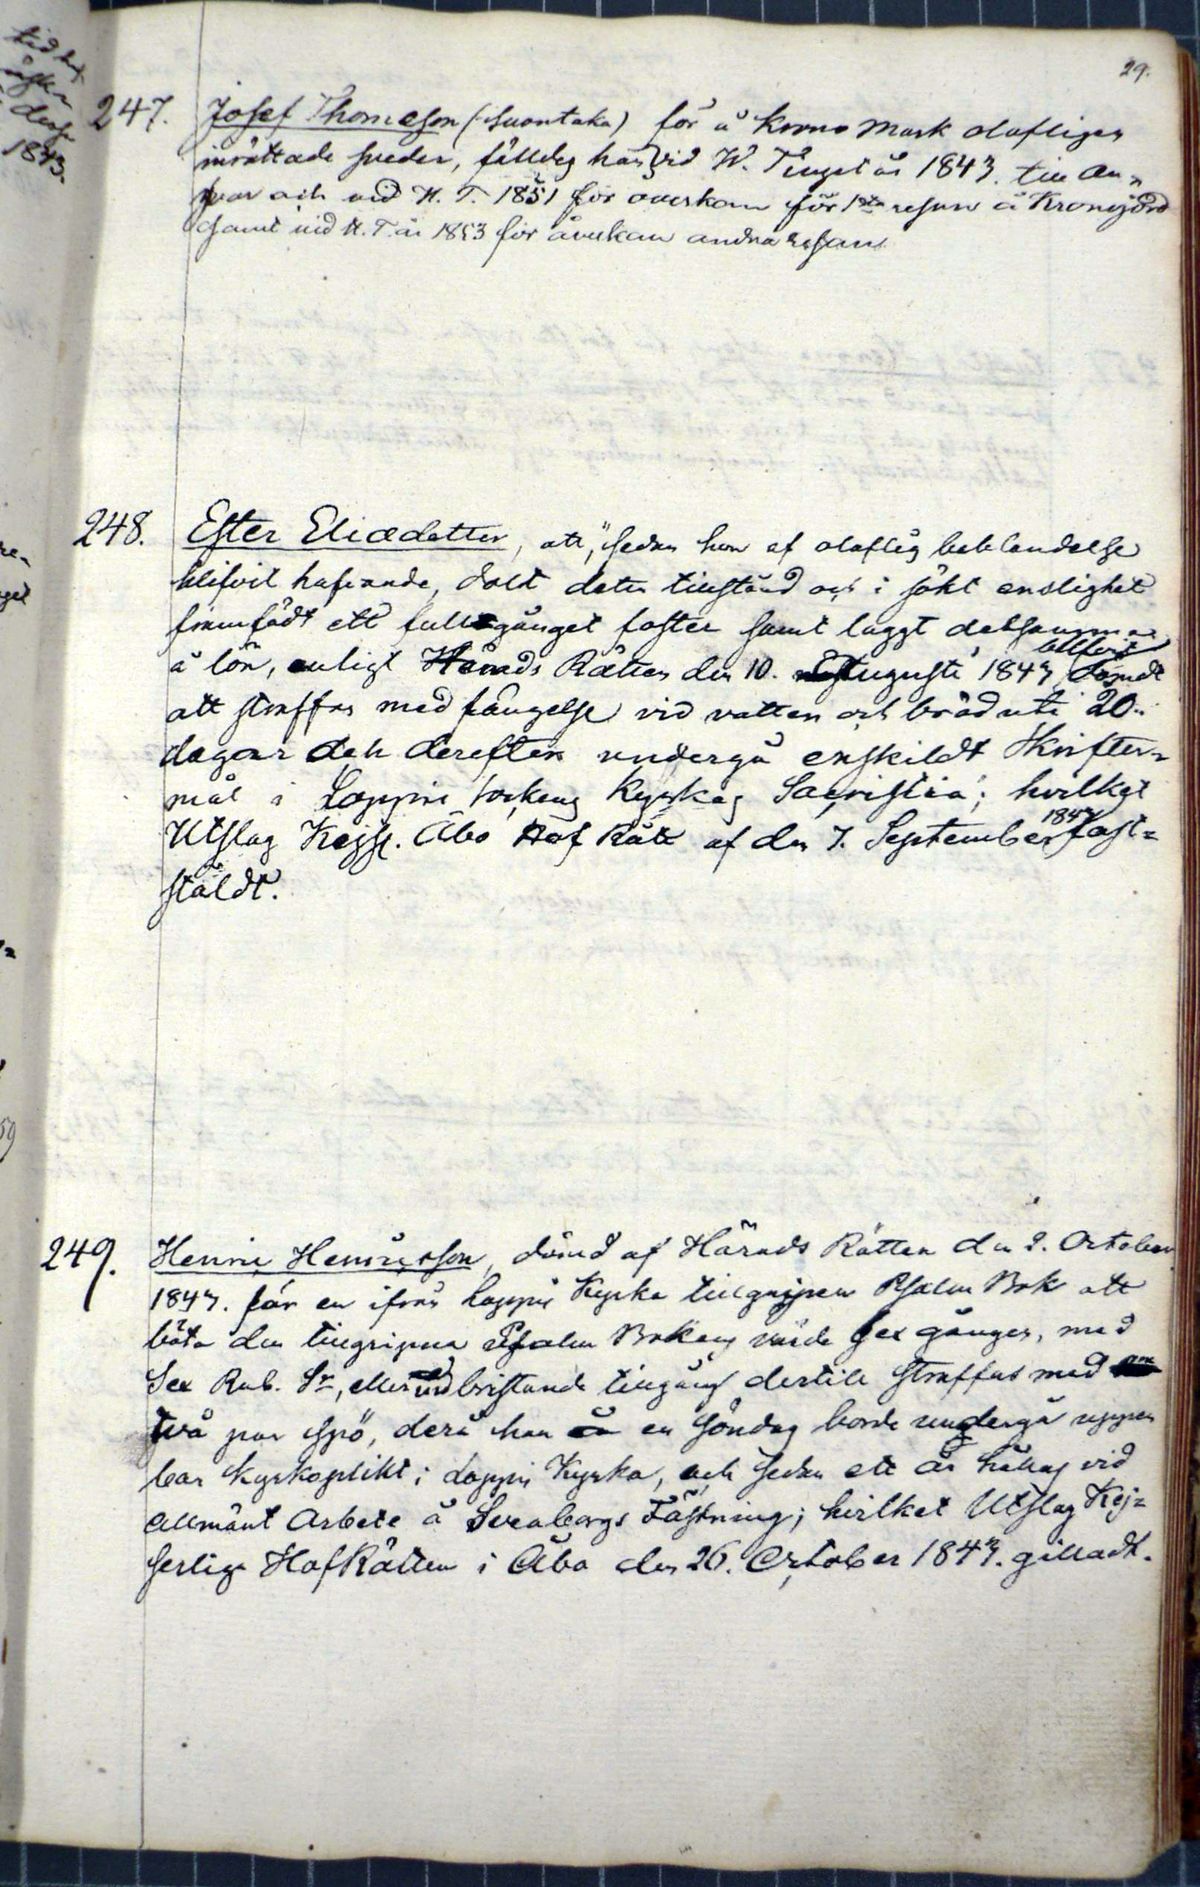 29.
247. Josef Thomæson (Suontaka) för å Krono Mark olafligen
inrättade sveder, fälldes här vid W. Tinget år 1843. till an-
svar och vid H. T. 1851 för overkan för 1sta resan å Kronojord
samt vid H. T. år 1853 för åverkan andra resan
248. Ester Eliædotter, att, sedan hon af olaflig beblandelse
blifvit hafvande, dolt detta tillstånd och i sökt enslighet
framfödt ett fullgånget foster samt laggt detsamma
å lön, enligt Härads Rätten den 10. Augusti 1843, blifvit dömdt
att straffas med fängelse vid vatten och bröd uti 20.
dagar och derefter undergå enskildt Skrifter-
mål i Loppis sockens Kyrkas Sacristia; hvilket
Utslag Kejs. Åbo Hof Rätt af den 7. September 1843 fast-
stäldt.
249. Henric Henricsson, dömd af Härads Rätten den 2. October
1843. för en ifrån Loppis Kyrka tillgripen Psalm Bok att
böta den tillgripna Psalm Bokens värde sex gånger, med
Sex Rub. Sr, eller vid bristande tillgång dertill straffas med
två par spö, derå han en Söndag borde undergå uppen
bar Kyrkoplikt i Loppis Kyrka, och sedan ett år hållas vid
allmänt Arbete å Sveaborgs Fästning; hvilket Utslag Kej-
serlige HofRätten i Åbo den 26. October 1843. gilladt.